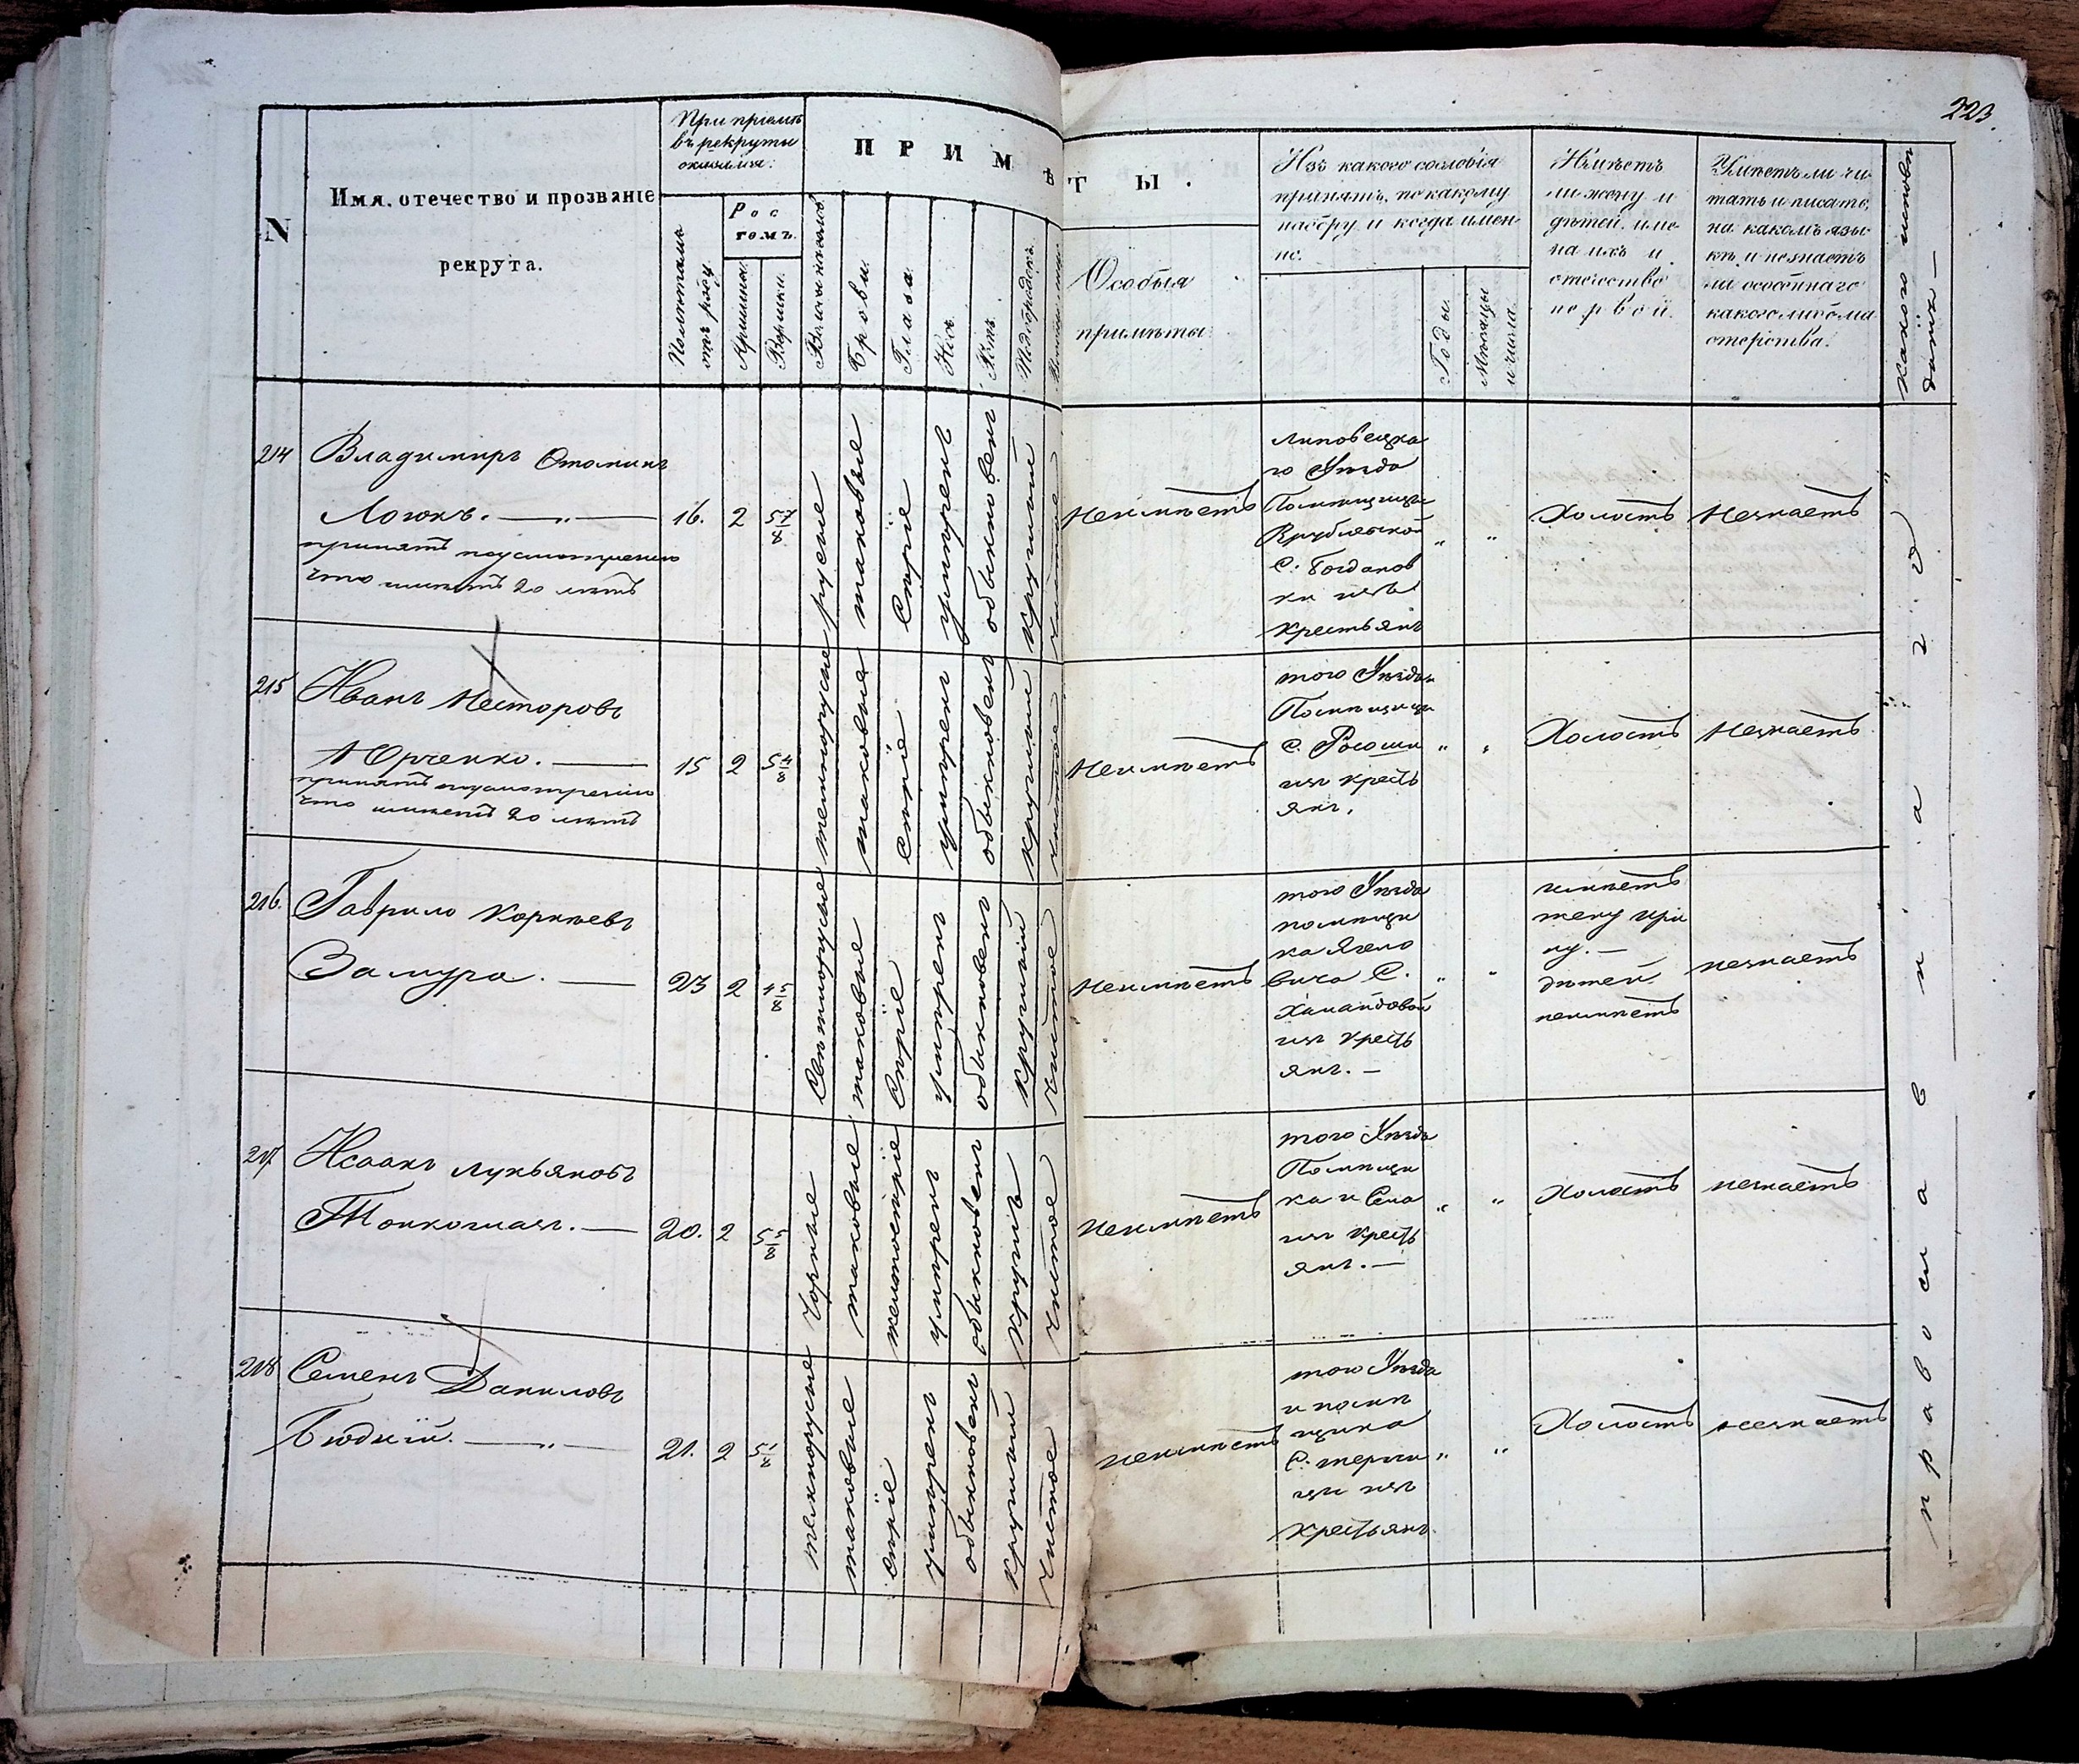 223.
N
Имя, отечество и прозваніе
рекрута.
При приемѣ
въ рекруты
оказался:
Полѣтамъ
отъ роду
Рос
томъ.
Аршины.
Вершки.
ПРИМѢТЫ.
Брови.
Глаза.
Носъ.
Ротъ.
Подбородокъ.
Особыя
примѣты
Изъ какого сословія
принятъ, по какому
набору и когда имен-
но.
Годы.
Мѣсяцы
и числа.
Имѣетъ
ли жену и
дѣтей. име-
на ихъ и
отечество
первой.
Умѣетъ ли чи-
тать и писать,
на какомъ язы-
кѣ, и незнаетъ
ли особеннаго
какого либо ма
стерства.
Какого исповѣ
данія —
214
Владимиръ
Логокъ. — „ —
принятъ поусмотрению
что имѣетъ 20 лѣтъ
16.
2
5 7/8
русые
таковые
Серые
умѣренъ
обыкновенъ
круглый
чистое
Неимѣетъ
Липовецка
го Уѣзда
Помѣщицы
Врублевской
С. Богданов
ки изъ
крестьянъ
„
„
Холостъ
Незнаетъ
215
Иванъ Несторовъ
Юрченко. —
принятъ поусмотрению
что имѣетъ 20 лѣтъ
15
2
5 4/8
темнорусые
таковые
Серые
умѣренъ
обыкновенъ
круглый
чистое
Неимѣетъ
того Уѣзда
Помѣщицы
С. Росоши
изъ кресть
янъ.
„
„
Холостъ
Незнаетъ
216.
Гаврило Корнѣевъ
Замура. —
23
2
4 5/8
Светлорусые
таковые
Серые
умѣренъ
обыкновенъ
круглый
чистое
Неимѣетъ
того Уѣзда
помѣщи
ка Ячево
вича С.
Хамайдовой
изъ кресть
янъ. —
„
„
имѣетъ
жену Ири
ну. —
дѣтей
неимѣетъ
незнаетъ
217
Исаакъ Лукьяновъ
Тонкоглазъ. —
20.
2
5 5/8
Чорные
таковые
желтосерые
умѣренъ
обыкновенъ
круглъ
чистое
Неимѣетъ
того Уѣзда
Помѣщи
ка и Села
изъ кресть
янъ. —
„
„
Холостъ
незнаетъ
218
Семенъ Даниловъ
Бѣдный. — „ —
21.
2
5 1/8
темнорусые
таковые
серые
умѣренъ
обыкновенъ
круглый
чистое
неимѣетъ
того Уѣзда
и помѣ
щика
С.
изъ
крестьянъ.
„
„
Холостъ
незнаетъ
православнаго